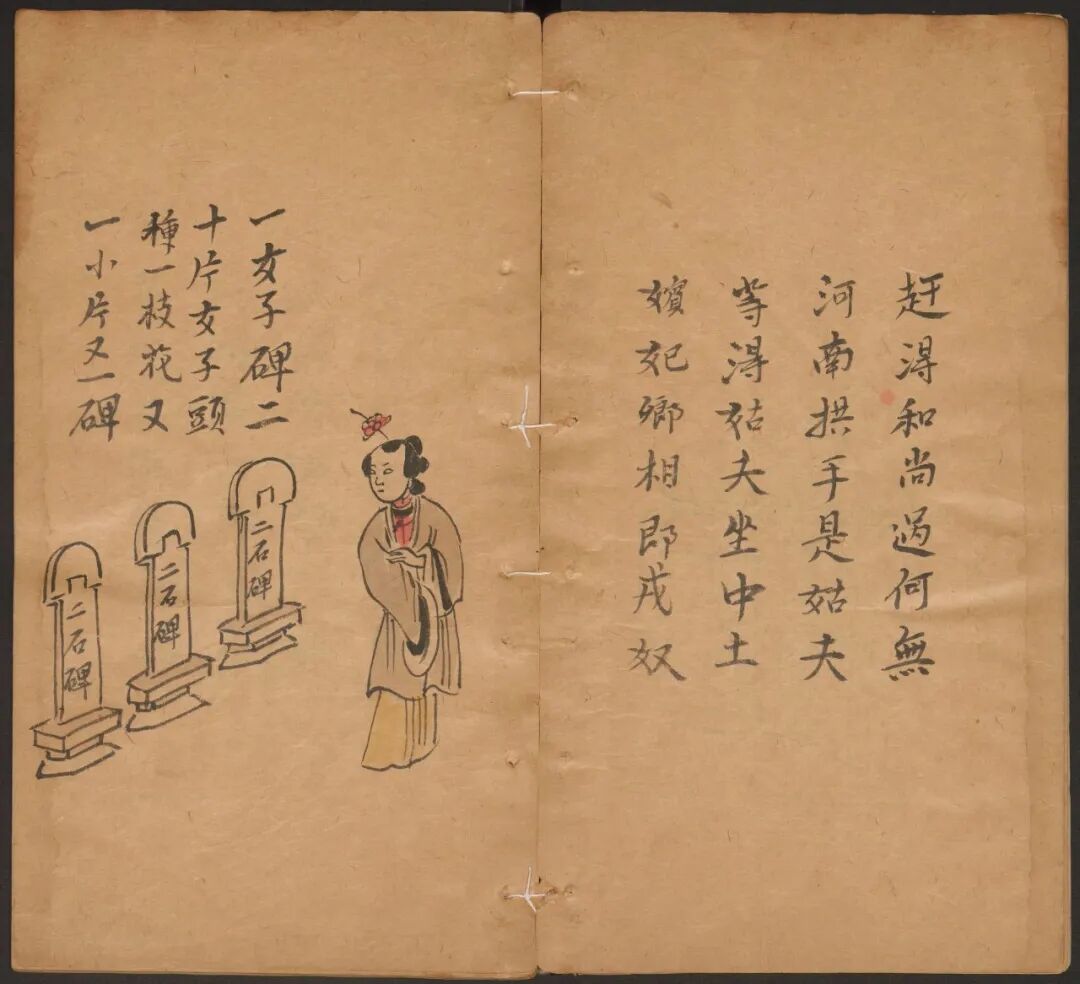 赶淂和尚過何無
河南拱手是姑夫
等淂姑夫坐中土
嬪妃鄉相即戎奴
一女子碑二
十片女子頭
種一枝花又
一小片又一碑
二石碑
二石碑
二石碑